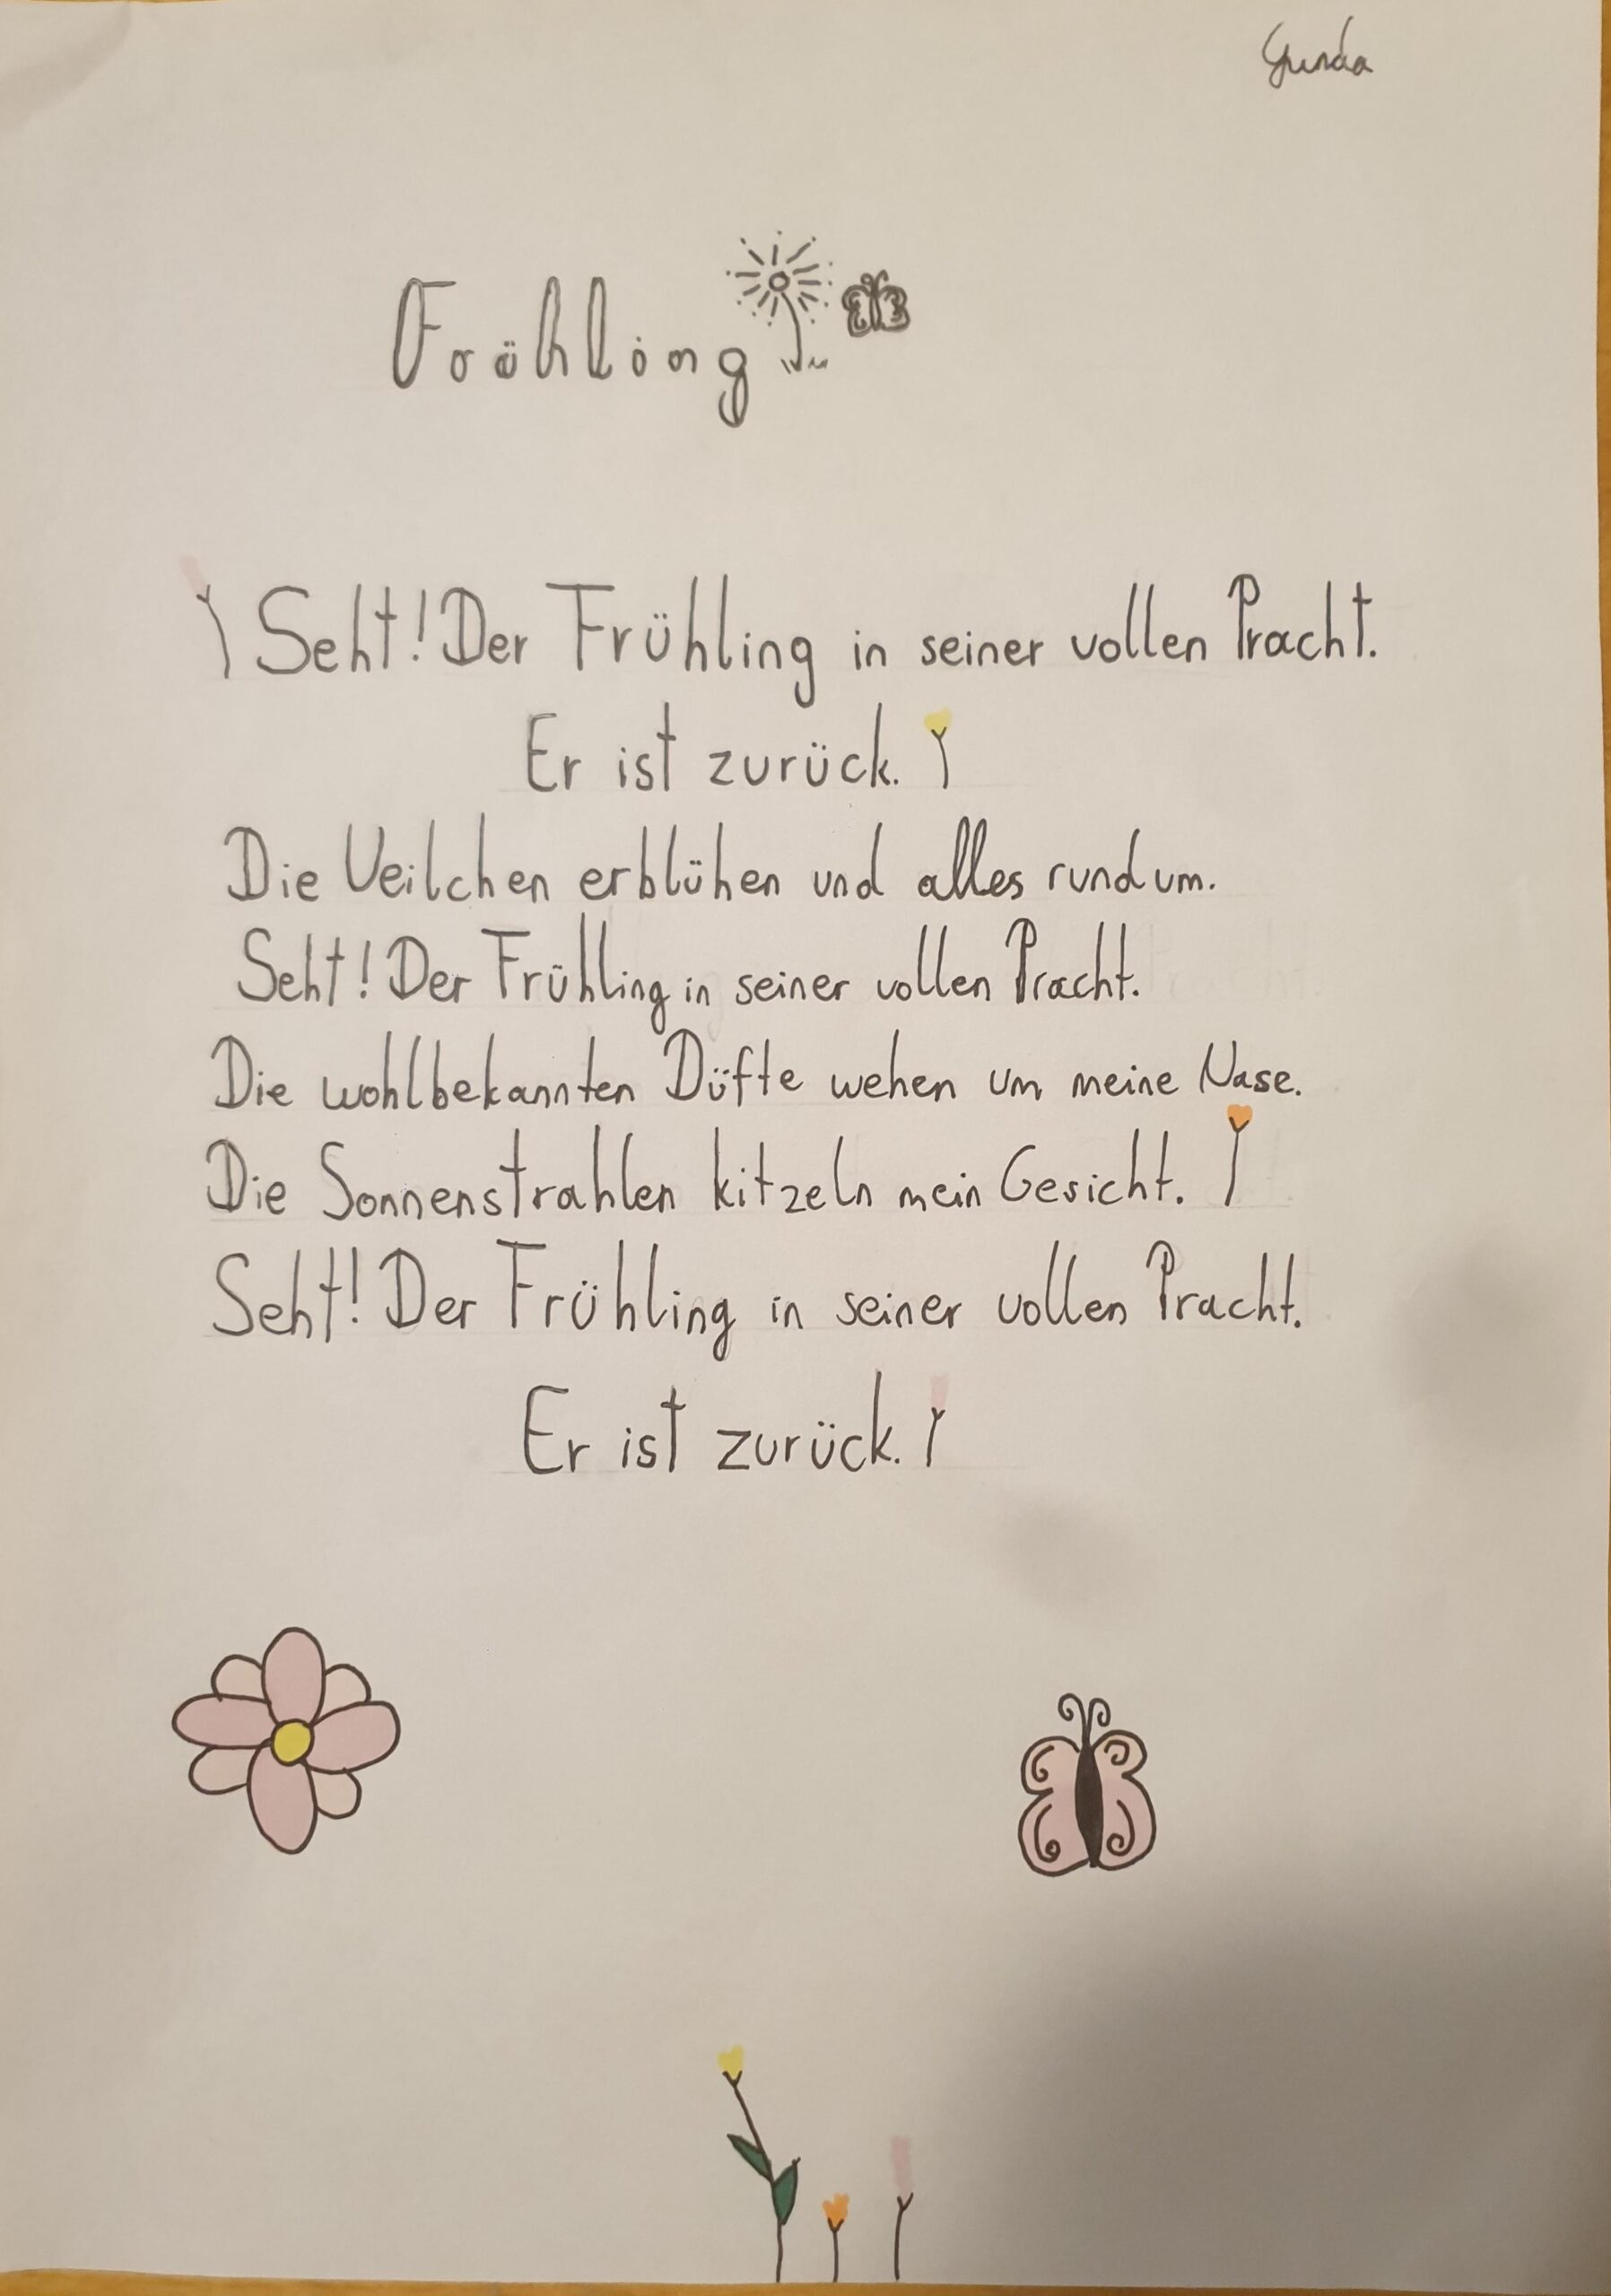 Gunda
Frühling
Seht! Der Frühling in seiner vollen Pracht.
Er ist zurück.
Die Veilchen erblühen und alles rundum.
Seht! Der Frühling in seiner vollen Pracht.
Die wohlbekannten Düfte wehen um meine Nase.
Die Sonnenstrahlen kitzeln mein Gesicht.
Seht! Der Frühling in seiner vollen Pracht.
Er ist zurück.